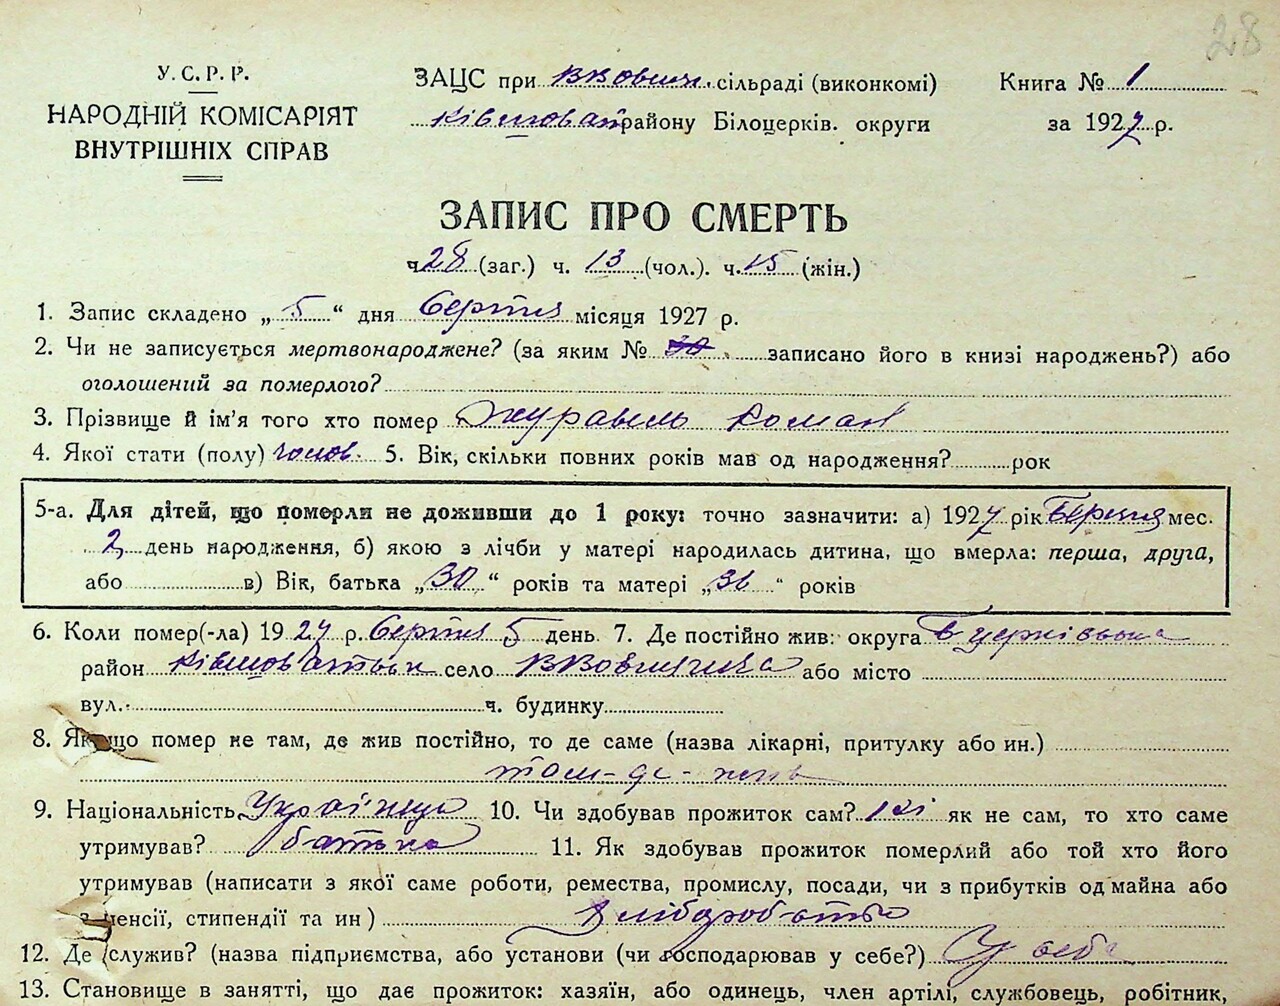 28
У. С. Р. Р.
НАРОДНІЙ КОМІСАРІЯТ
ВНУТРІШНІХ СПРАВ
ЗАЦС при сільраді (виконкомі)
Ківшоват району Білоцерків. округи
Книга № 1
за 1927 р.
ЗАПИС ПРО СМЕРТЬ
ч. 28 (заг.) ч. 13 (чол.). ч. 15 (жін.)
1. Запис складено „ 5 “ дня берозня місяця 1927 р.
2. Чи не записується мертвонароджене? (за яким № записано його в книзі народжень?) або
оголошений за померлого?
3. Прізвище й ім'я того хто помер Журавель Роман
4. Якої стати (полу) чолов. 5. Вік, скільки повних років мав од народження? рок
5-а. Для дітей, що померли не доживши до 1 року: точно зазначити: а) 1927 рік мес.
2 день народження, б) якою з лічби у матері народилась дитина, що вмерла: перша, друга,
або в) Вік, батька „ 30 “ років та матері „ “ років
6. Коли помер(-ла) 1927 р. 5 день. 7. Де постійно жив: округа Б церківська
район Ківшоватськ село або місто
вул. ч. будинку
8. Якщо помер не там, де жив постійно, то де саме (назва лікарні, притулку або ин.)
9. Національність 10. Чи здобував прожиток сам? ні як не сам, то хто саме
утримував? батько 11. Як здобував прожиток померлий або той хто його
утримував (написати з якої саме роботи, ремества, промислу, посади, чи з прибутків од майна або
з пенсії, стипендії та ин) Хліборобство
12. Де служив? (назва підприємства, або установи (чи господарював у себе?) У себе
13. Становище в занятті, що дає прожиток: хазяїн, або одинець, член артілі, службовець, робітник,